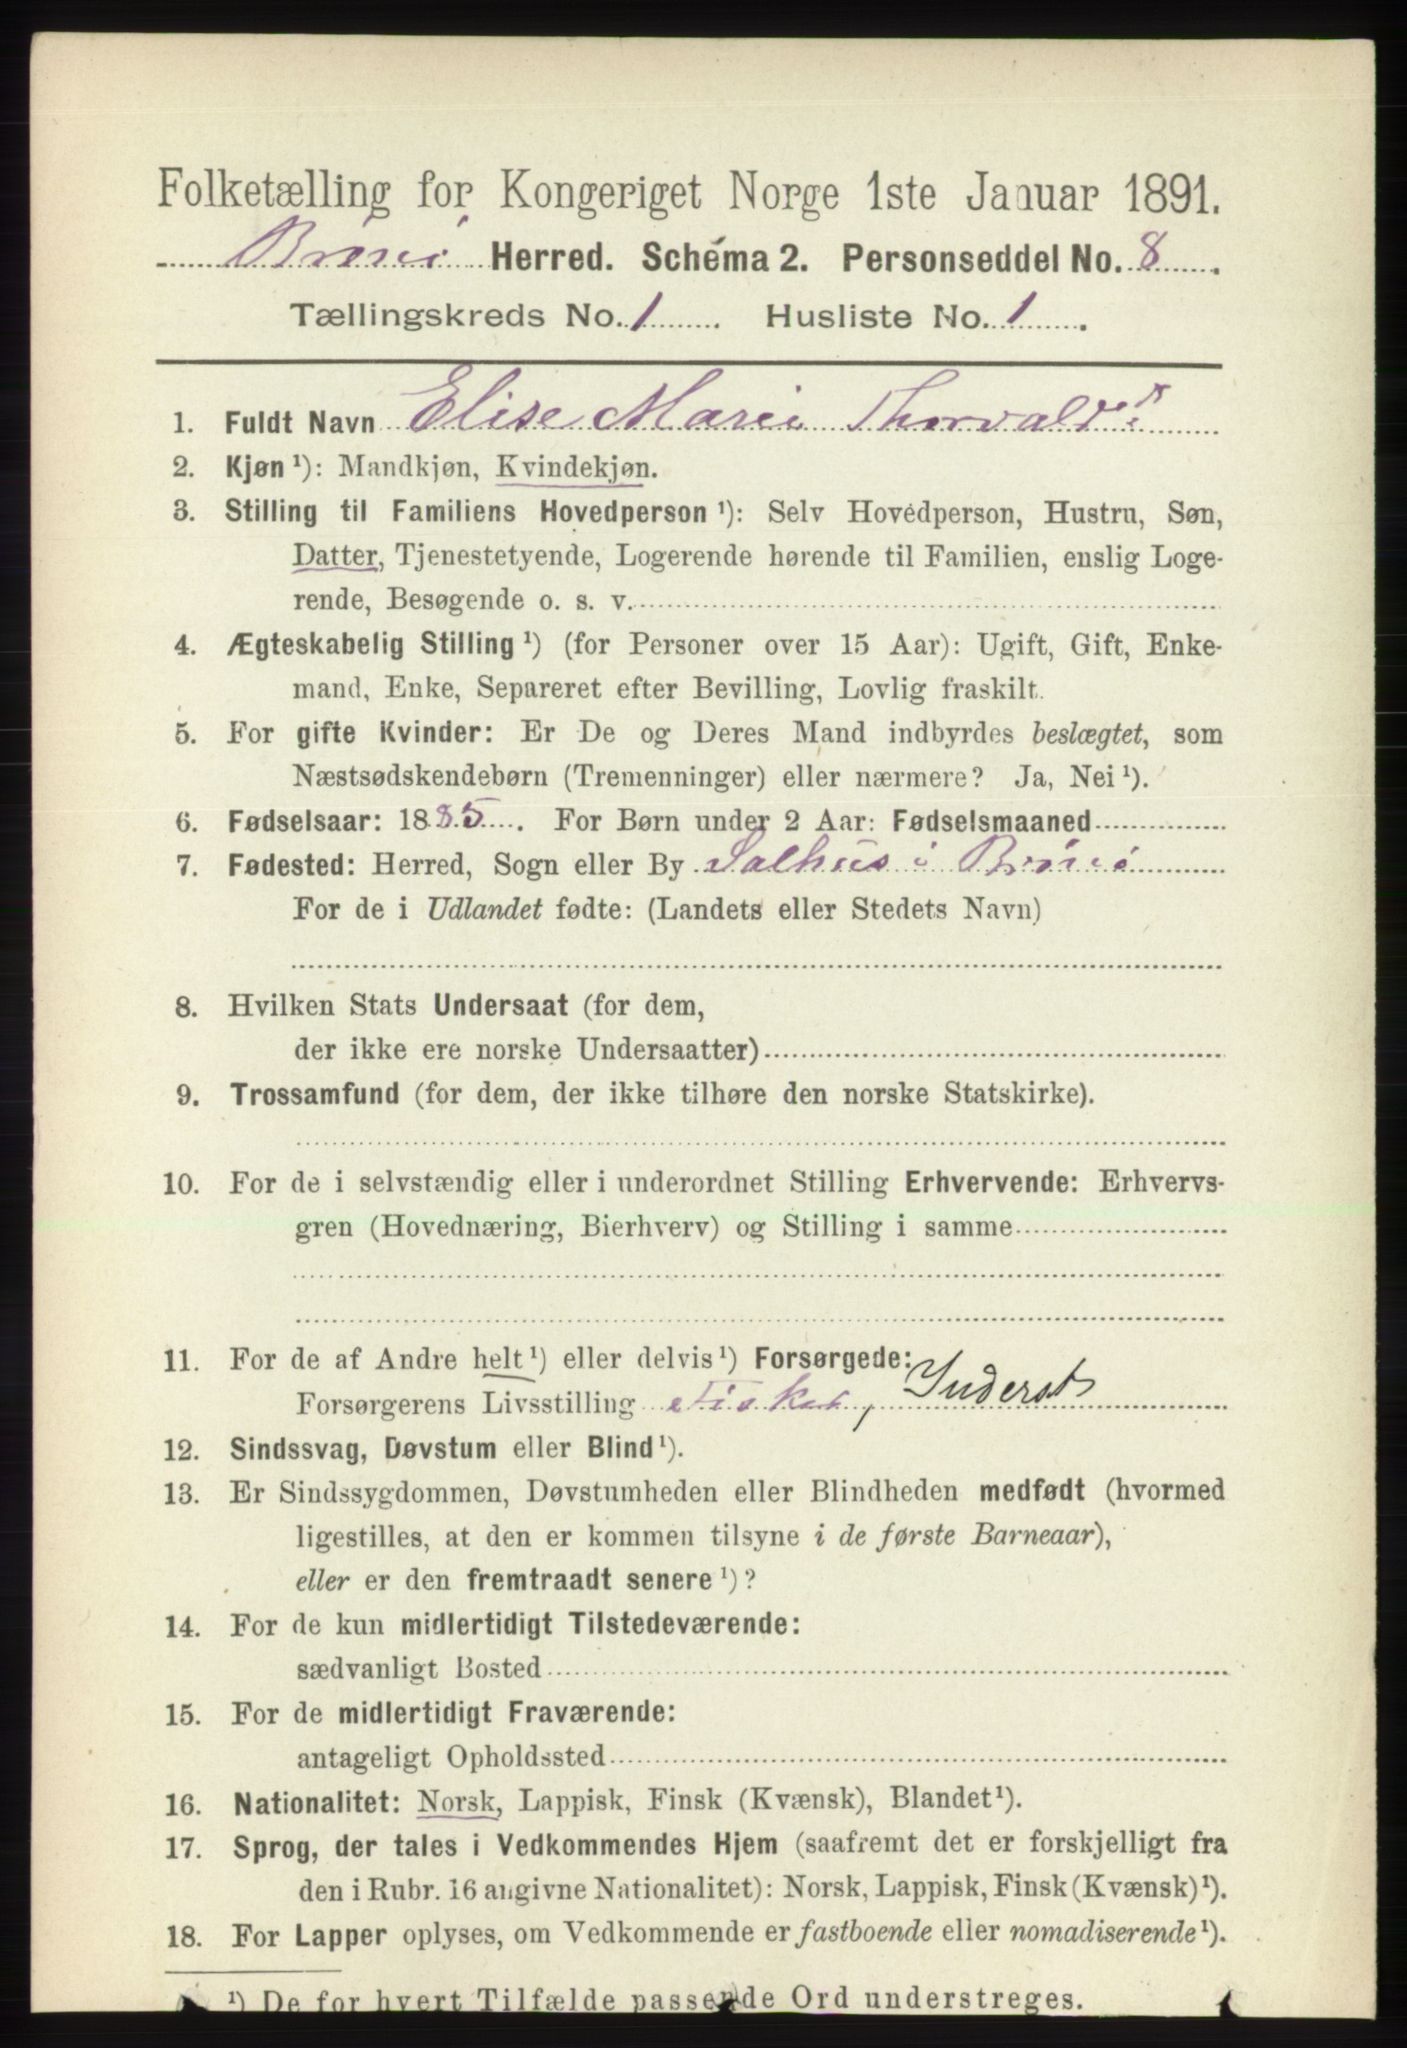 Folketælling for Kongeriget Norge 1ste Januar 1891.
Brønø Herred. Schema 2. Personseddel No. 8.
Tællingskreds No. 1. Husliste No. 1.
1. Fuldt Navn Elise Marie Thorvaldsd.
2. Kjøn ¹): Mandkjøn, Kvindekjøn.
3. Stilling til Familiens Hovedperson ¹): Selv Hovedperson, Hustru, Søn,
Datter, Tjenestetyende, Logerende hørende til Familien, enslig Loge-
rende, Besøgende o. s. v.
4. Ægteskabelig Stilling ¹) (for Personer over 15 Aar): Ugift, Gift, Enke-
mand, Enke, Separeret efter Bevilling, Lovlig fraskilt.
5. For gifte Kvinder: Er De og Deres Mand indbyrdes beslægtet, som
Næstsødskendebørn (Tremenninger) eller nærmere? Ja, Nei ¹).
6. Fødselsaar: 1885. For Børn under 2 Aar: Fødselsmaaned
7. Fødested: Herred, Sogn eller By Salhus i Brønø
For de i Udlandet fødte: (Landets eller Stedets Navn)
8. Hvilken Stats Undersaat (for dem,
der ikke ere norske Undersaatter)
9. Trossamfund (for dem, der ikke tilhøre den norske Statskirke).
10. For de i selvstændig eller i underordnet Stilling Erhvervende: Erhvervs-
gren (Hovednæring, Bierhverv) og Stilling i samme
11. For de af Andre helt ¹) eller delvis ¹) Forsørgede:
Forsørgerens Livsstilling Fisker, Inderst
12. Sindssvag, Døvstum eller Blind ¹).
13. Er Sindssygdommen, Døvstumheden eller Blindheden medfødt (hvormed
ligestilles, at den er kommen tilsyne i de første Barneaar),
eller er den fremtraadt senere ¹)?
14. For de kun midlertidigt Tilstedeværende:
sædvanligt Bosted
15. For de midlertidigt Fraværende:
antageligt Opholdssted
16. Nationalitet: Norsk, Lappisk, Finsk (Kvænsk), Blandet ¹).
17. Sprog, der tales i Vedkommendes Hjem (saafremt det er forskjelligt fra
den i Rubr. 16 angivne Nationalitet): Norsk, Lappisk, Finsk (Kvænsk) ¹).
18. For Lapper oplyses, om Vedkommende er fastboende eller nomadiserende ¹).
¹) De for hvert Tilfælde passende Ord understreges.